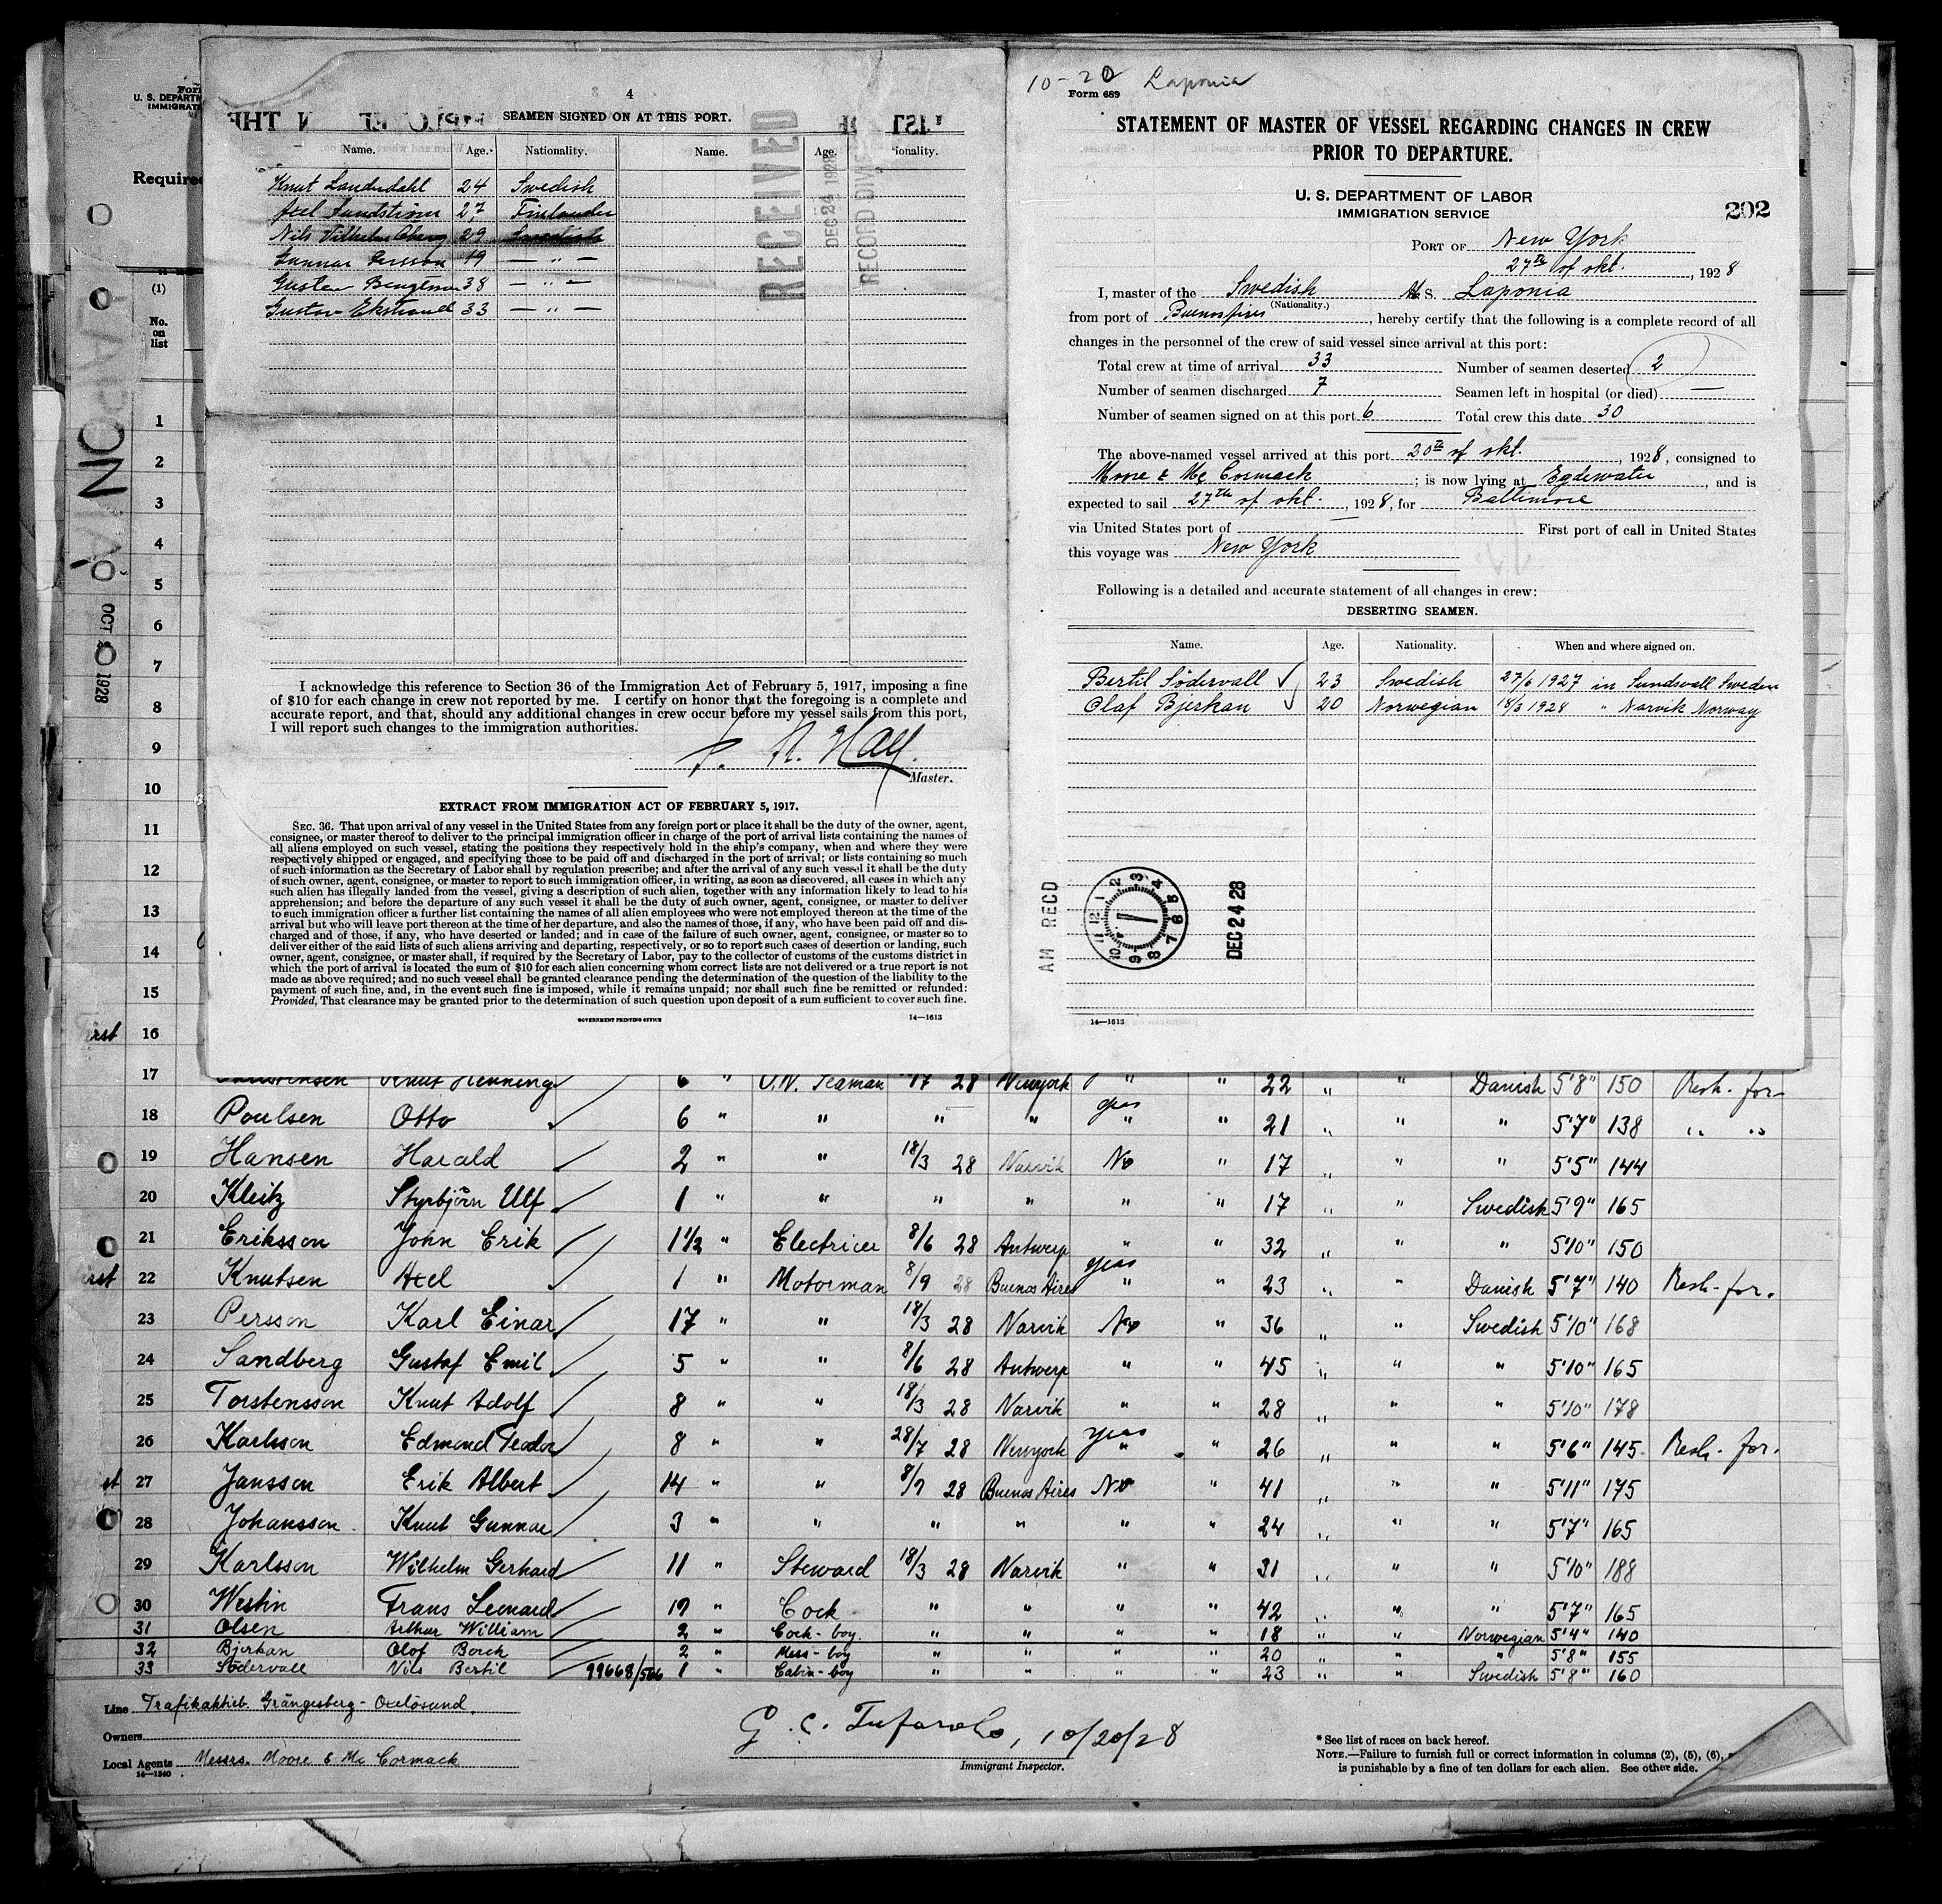 4
SEAMEN SIGNED ON AT THIS PORT.
Name. Age. Nationality. Name. Age.
24 Swedish
27 Finlander
29 Swedish
19 — " —
38 — " —
Gustav Ekstrand 33 — " —
RECEIVED
DEC 24 1928
RECORD DIV
I acknowledge this reference to Section 36 of the Immigration Act of February 5, 1917, imposing a fine
of $10 for each change in crew not reported by me. I certify on honor that the foregoing is a complete and
accurate report, and that, should any additional changes in crew occur before my vessel sails from this port,
I will report such changes to the immigration authorities.
Master.
EXTRACT FROM IMMIGRATION ACT OF FEBRUARY 5, 1917.
SEC. 36. That upon arrival of any vessel in the United States from any foreign port or place it shall be the duty of the owner, agent,
consignee, or master thereof to deliver to the principal immigration officer in charge of the port of arrival lists containing the names of
all aliens employed on such vessel, stating the positions they respectively hold in the ship's company, when and where they were
respectively shipped or engaged, and specifying those to be paid off and discharged in the port of arrival; or lists containing so much
of such information as the Secretary of Labor shall by regulation prescribe; and after the arrival of any such vessel it shall be the duty
of such owner, agent, consignee, or master to report to such immigration officer, in writing, as soon as discovered, all cases in which any
such alien has illegally landed from the vessel, giving a description of such alien, together with any information likely to lead to his
apprehension; and before the departure of any such vessel it shall be the duty of such owner, agent, consignee, or master to deliver
to such immigration officer a further list containing the names of all alien employees who were not employed thereon at the time of the
arrival but who will leave port thereon at the time of her departure, and also the names of those, if any, who have been paid off and dis-
charged and of those, if any, who have deserted or landed; and in case of the failure of such owner, agent, consignee, or master so to
deliver either of the said lists of such aliens arriving and departing, respectively, or so to report such cases of desertion or landing, such
owner, agent, consignee, or master shall, if required by the Secretary of Labor, pay to the collector of customs of the customs district in
which the port of arrival is located the sum of $10 for each alien concerning whom correct lists are not delivered or a true report is not
made as above required; and no such vessel shall be granted clearance pending the determination of the question of the liability to the
payment of such fine, and, in the event such fine is imposed, while it remains unpaid; nor shall such fine be remitted or refunded:
Provided, That clearance may be granted prior to the determination of such question upon deposit of a sum sufficient to cover such fine.
GOVERNMENT PRINTING OFFICE 14—1613
10-20 Laponia
Form 689
STATEMENT OF MASTER OF VESSEL REGARDING CHANGES IN CREW
PRIOR TO DEPARTURE.
U. S. DEPARTMENT OF LABOR
IMMIGRATION SERVICE
202
PORT OF New York
27th of okt., 1928
I, master of the Swedish M.S. Laponia
(Nationality.)
from port of Buenos Aires, hereby certify that the following is a complete record of all
changes in the personnel of the crew of said vessel since arrival at this port:
Total crew at time of arrival 33 Number of seamen deserted 2
Number of seamen discharged 7 Seamen left in hospital (or died) —
Number of seamen signed on at this port 6 Total crew this date 30
The above-named vessel arrived at this port 20th of okt., 1928, consigned to
Moore & Mc Cormack; is now lying at Egdewater, and is
expected to sail 27th of okt., 1928, for Baltimore
via United States port of — First port of call in United States
this voyage was New York
Following is a detailed and accurate statement of all changes in crew:
DESERTING SEAMEN.
Name. Age. Nationality. When and where signed on.
Bertil Södervall 23 Swedish 27/6 1927 in Sundsvall Sweden
Olaf Bjerkan 20 Norwegian 18/3 1928 " Narvik Norway
AM RECD DEC 24 28
14—1613
Form
U. S. DEPARTM
IMMIGRAT
Require
(1)
No.
on
list
OCT 20 1928
1
2
3
4
5
6
7
8
9
10
11
12
13
14
15
16
17 Knut Henning 6 " O.N. Seaman 28 Newyork " " 22 " " Danish 5'8" 150 Resh. for-
18 Poulsen Otto 6 " " " " yes " 21 " " " 5'7" 138 " "
19 Hansen Harald 2 " " 18/3 28 Narvik No " 17 " " " 5'5" 144
20 Kleitz Styrbjörn Ulf 1 " " " " " " 17 " " Swedish 5'9" 165
21 Eriksson John Erik 1½ " Electricer 8/6 28 Antwerp " " 32 " " " 5'10" 150
22 Knutsen Axel 1 " Motorman 8/9 28 Buenos Aires yes " 23 " " Danish 5'7" 140 Resh-for.
23 Persson Karl Einar 17 " " 18/3 28 Narvik No " 36 " " Swedish 5'10" 168
24 Sandberg Gustaf Emil 5 " " 8/6 28 Antwerp " " 45 " " " 5'10" 165
25 Torstensson Knut Adolf 8 " " 18/3 28 Narvik " " 28 " " " 5'10" 178
26 Karlsson Edmond Teodor 8 " " 28/7 28 Newyork yes " 26 " " " 5'6" 145 Resh. for.
27 Jansson Erik Albert 14 " " 8/9 28 Buenos Aires No " 41 " " " 5'11" 175
28 Johansson Knut Gunnar 3 " " " " " " 24 " " " 5'7" 165
29 Karlsson Wilhelm Gerhard 11 " Steward 18/3 28 Narvik " " 31 " " " 5'10" 188
30 Westin Frans Leonard 19 " Cock " " " " 42 " " " 5'7" 165
31 Olsen Arthur William 2 " Cock-boy. " " " " 18 " " Norwegian 5'4" 140
32 Bjerkan Olof Borck 2 " Mess-boy " " " " 20 " " " 5'8" 155
33 Södervall Nils Bertil 99668/566 1 " Cabin-boy " " " " 23 " " Swedish 5'8" 160
Line Trafikaktieb. Grängesberg-Oxelösund.
Owners
Local Agents Messrs. Moore & Mc Cormack
14—1240
10/20/28
Immigrant Inspector.
* See list of races on back hereof.
NOTE.—Failure to furnish full or correct information in columns (2), (5), (6),
is punishable by a fine of ten dollars for each alien. See other side.